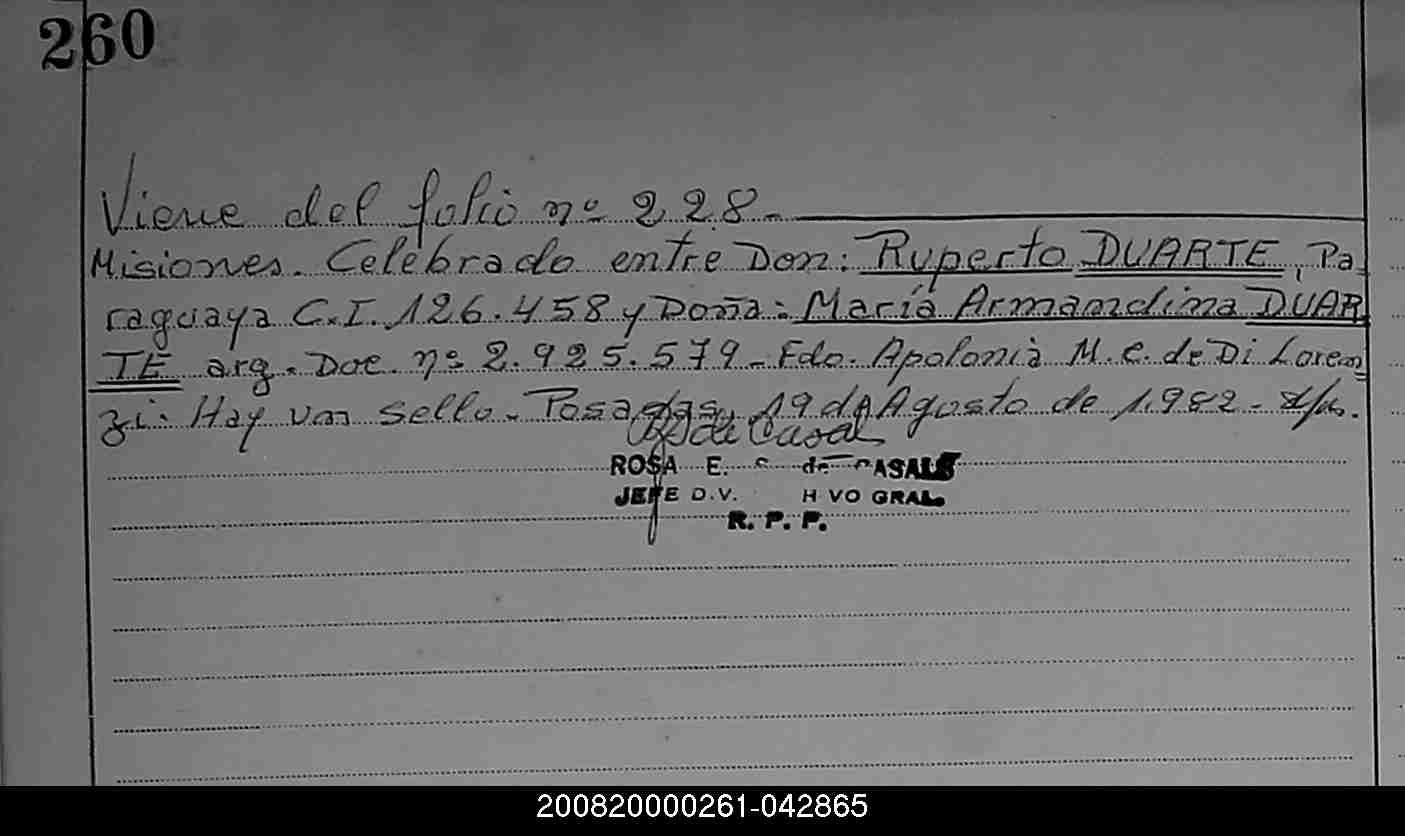 260
Viene del folio nº 228.
Misiones. Celebrado entre Don: Ruperto DUARTE, Pa
raguaya C.I. 126.458 y Doña: María Armandina DUAR
TE arg. Doc. nº 2.925.579 - Fdo. Apolonia M. C. de Di Loren
zi. Hay un sello. Posadas, 19 de Agosto de 1.982 -
ROSA E. S. de CASALS
JEFE D.V. H VO GRAL.
R. P. P.
200820000261-042865